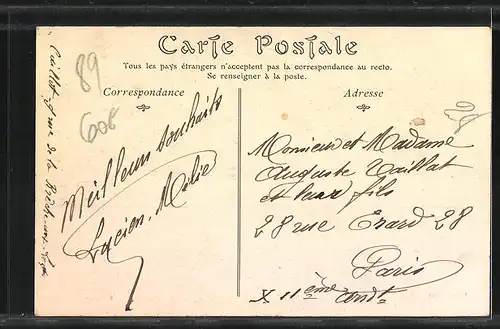 Carte Postale
Tous les pays étrangers n'acceptent pas la correspondance au recto.
Se renseigner à la poste.
Correspondance
Adresse
89
606
Meilleurs souhaits
Lucien
rue de la
Monsieur et Madame
Auguste Vaillat
et leur fils
28 rue Erard 28
Paris
X 11ème